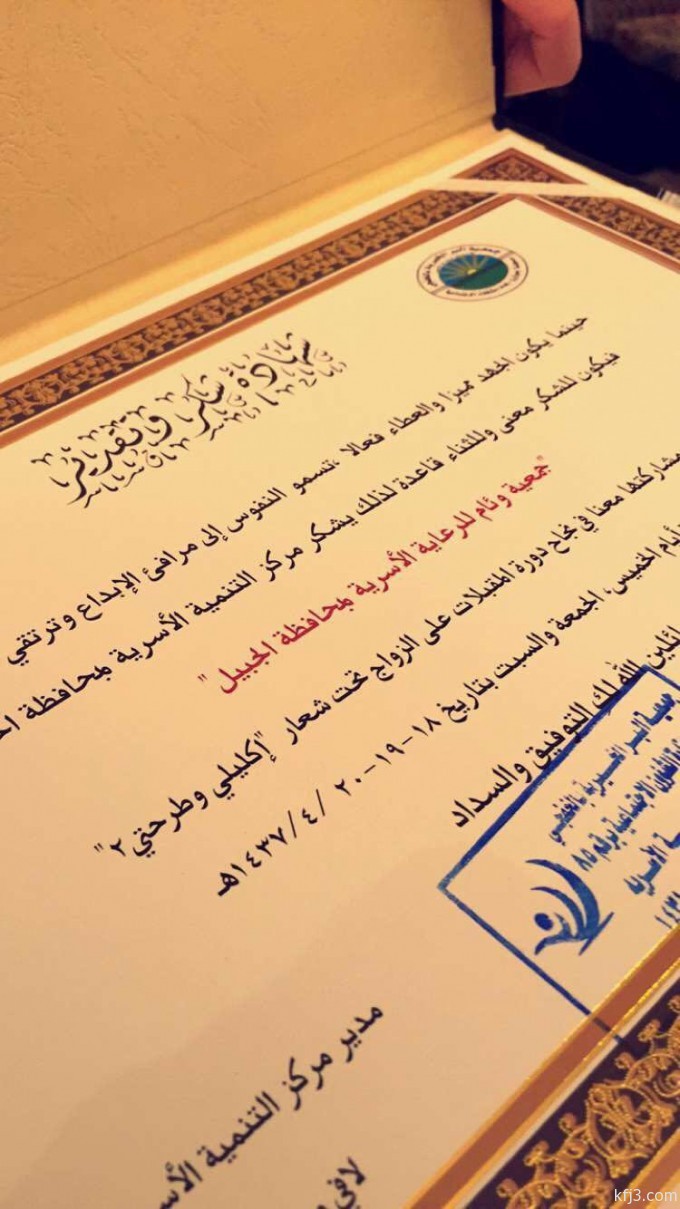 شهادة شكر وتقدير
حينما يكون الجهد مميزا والعطاء فعالا ،تسمو النفوس إلى مرافئ الإبداع وترتقي
فيكون للشكر معنى وللثناء قاعدة لذلك يشكر مركز التنمية الأسرية بمحافظة
"جمعية وئام للرعاية الأسرية بمحافظة الجبيل "
مشاركتها معنا في نجاح دورة المقبلات على الزواج تحت شعار "إكليلي وطرحتي ٢"
أيام الخميس، الجمعة والسبت بتاريخ ١٨-١٩-٢٠ /٤/ ١٤٣٧هـ
الله لك التوفيق والسداد
جمعية البر الخيرية
برقم ٨٥
مدير مركز التنمية
kfj3.com